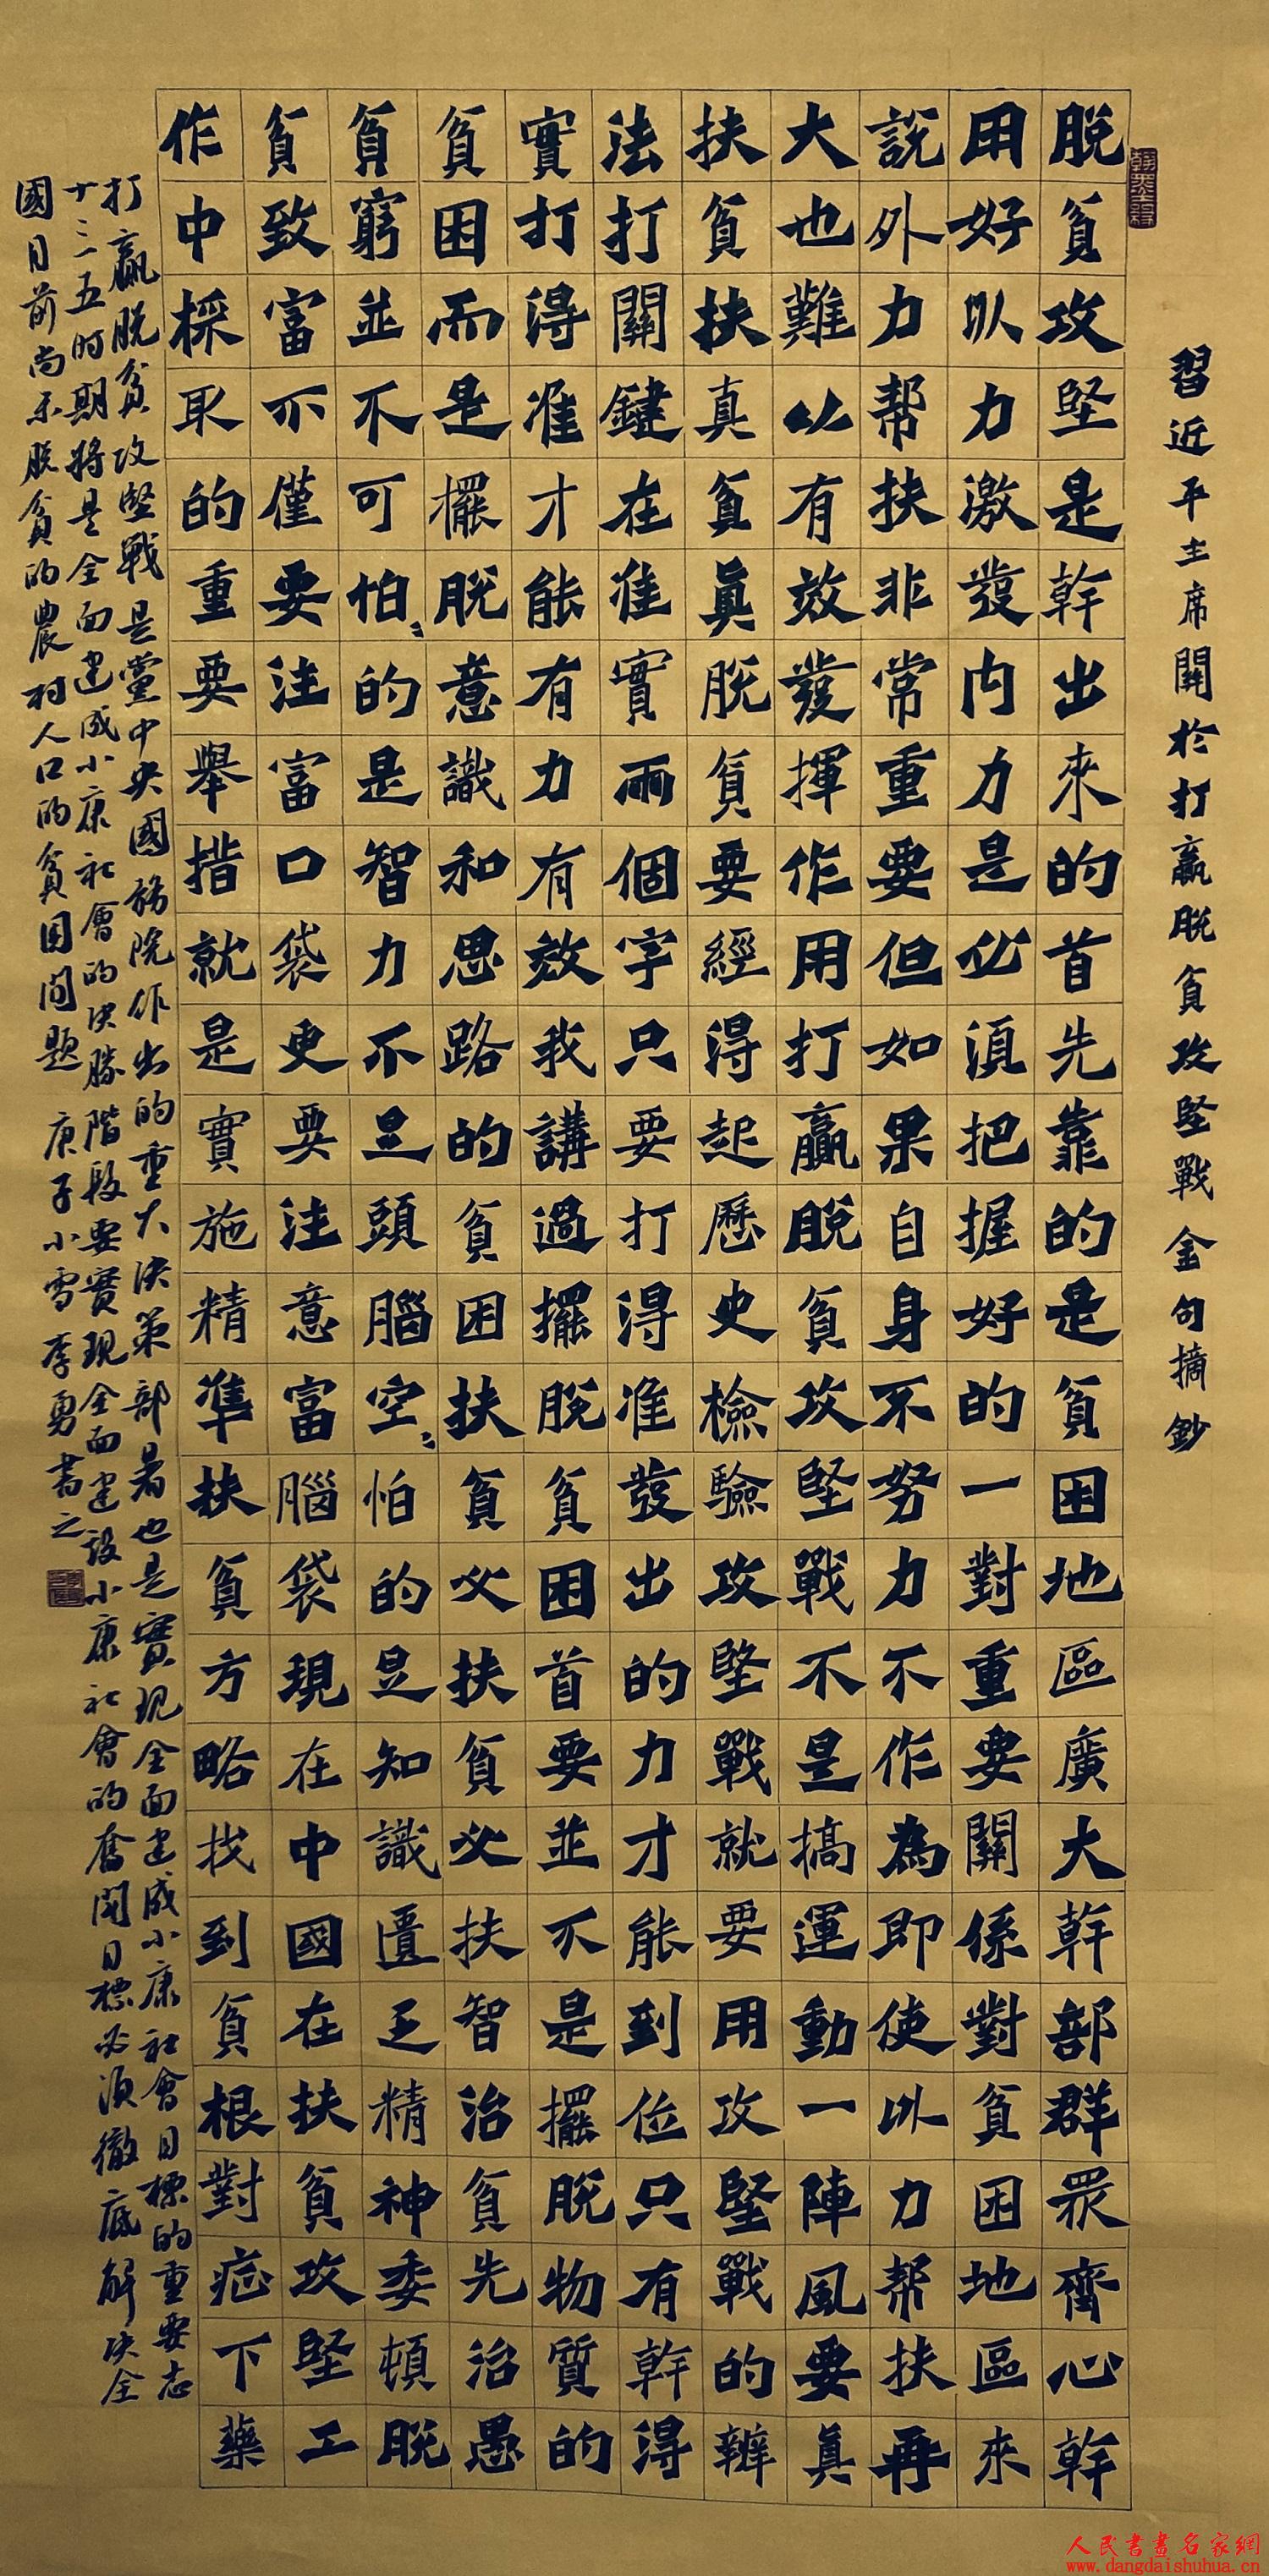 習近平主席關於打贏脱貧攻堅戰金句摘鈔
脱貧攻堅是幹出來的首先靠的是貧困地區廣大幹部群眾齊心幹
用好以力激發内力是必須把握好的一對重要關係對貧困地區來
説外力帮扶非常重要但如果自身不努力不作為即使以力帮扶再
大也難以有效發揮作用打贏脱貧攻堅戰不是搞運動一陣風要真
扶貧扶真貧真脱貧要經得起歷史檢驗攻堅戰就要用攻堅戰的辦
法打關鍵在准實兩個字只要打得准發出的力才能到位只有幹得
實打得准才能有力有效我講過擺脱貧困首要並不是擺脱物質的
貧困而是擺脱意識和思路的貧困扶貧必扶貧必扶智治貧先治愚
貧窮並不可怕怕的是智力不足頭腦空空怕的是知識匱乏精神委頓脱
貧致富不僅要注富口袋更要注意富腦袋現在中國在扶貧攻堅工
作中採取的重要舉措就是實施精準扶貧方略找到貧根對症下藥
打贏脱貧攻堅戰是黨中央國務院作出的重大決策部署也是實現全面建成小康社會目標的重要志
十三五时期將是全面建成小康社會的决勝階段要實現全面建設小康社會的奮鬪目標必須徹底解决全
國目前尚未脱貧的農村人口的貧困問題 庚子小雪李勇書之
人民書畫名家網
www.dangdaishuhua.cn